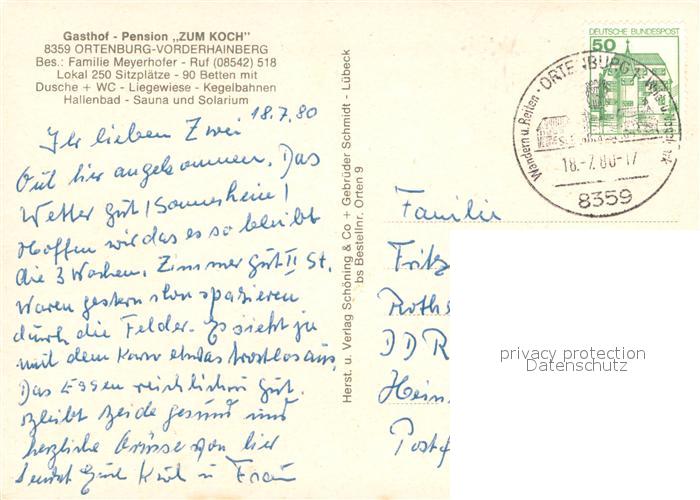 Gasthof - Pension „ZUM KOCH"
8359 ORTENBURG-VORDERHAINBERG
Bes.: Familie Meyerhofer - Ruf (08542) 518
Lokal 250 Sitzplätze - 90 Betten mit
Dusche + WC - Liegewiese - Kegelbahnen
Hallenbad - Sauna und Solarium
18.7.80
Ihr lieben Zwei
Gut hier angekommen. Das
Wetter gut! Sonnenschein!
Hoffen wir das es so bleibt
die 3 Wochen. Zimmer gut II St.
Waren gestern schon spazieren
durch die Felder. Es sieht ja
mit dem Korn etwas trostlos aus,
Das Essen reichlich u gut.
Bleibt beide gesund und
herzliche Grüsse von hier
sendet Euch Karl u Frau
Herst. u. Verlag Schöning & Co + Gebrüder Schmidt - Lübeck
bs Bestellnr. Orten 9
DEUTSCHE BUNDESPOST
50
Wandern u. Reiten - ORTENBURG
18.-7.80-17
8359
Familie
Fritz
Roths
DDR
Hein
Postf
privacy protection
Datenschutz